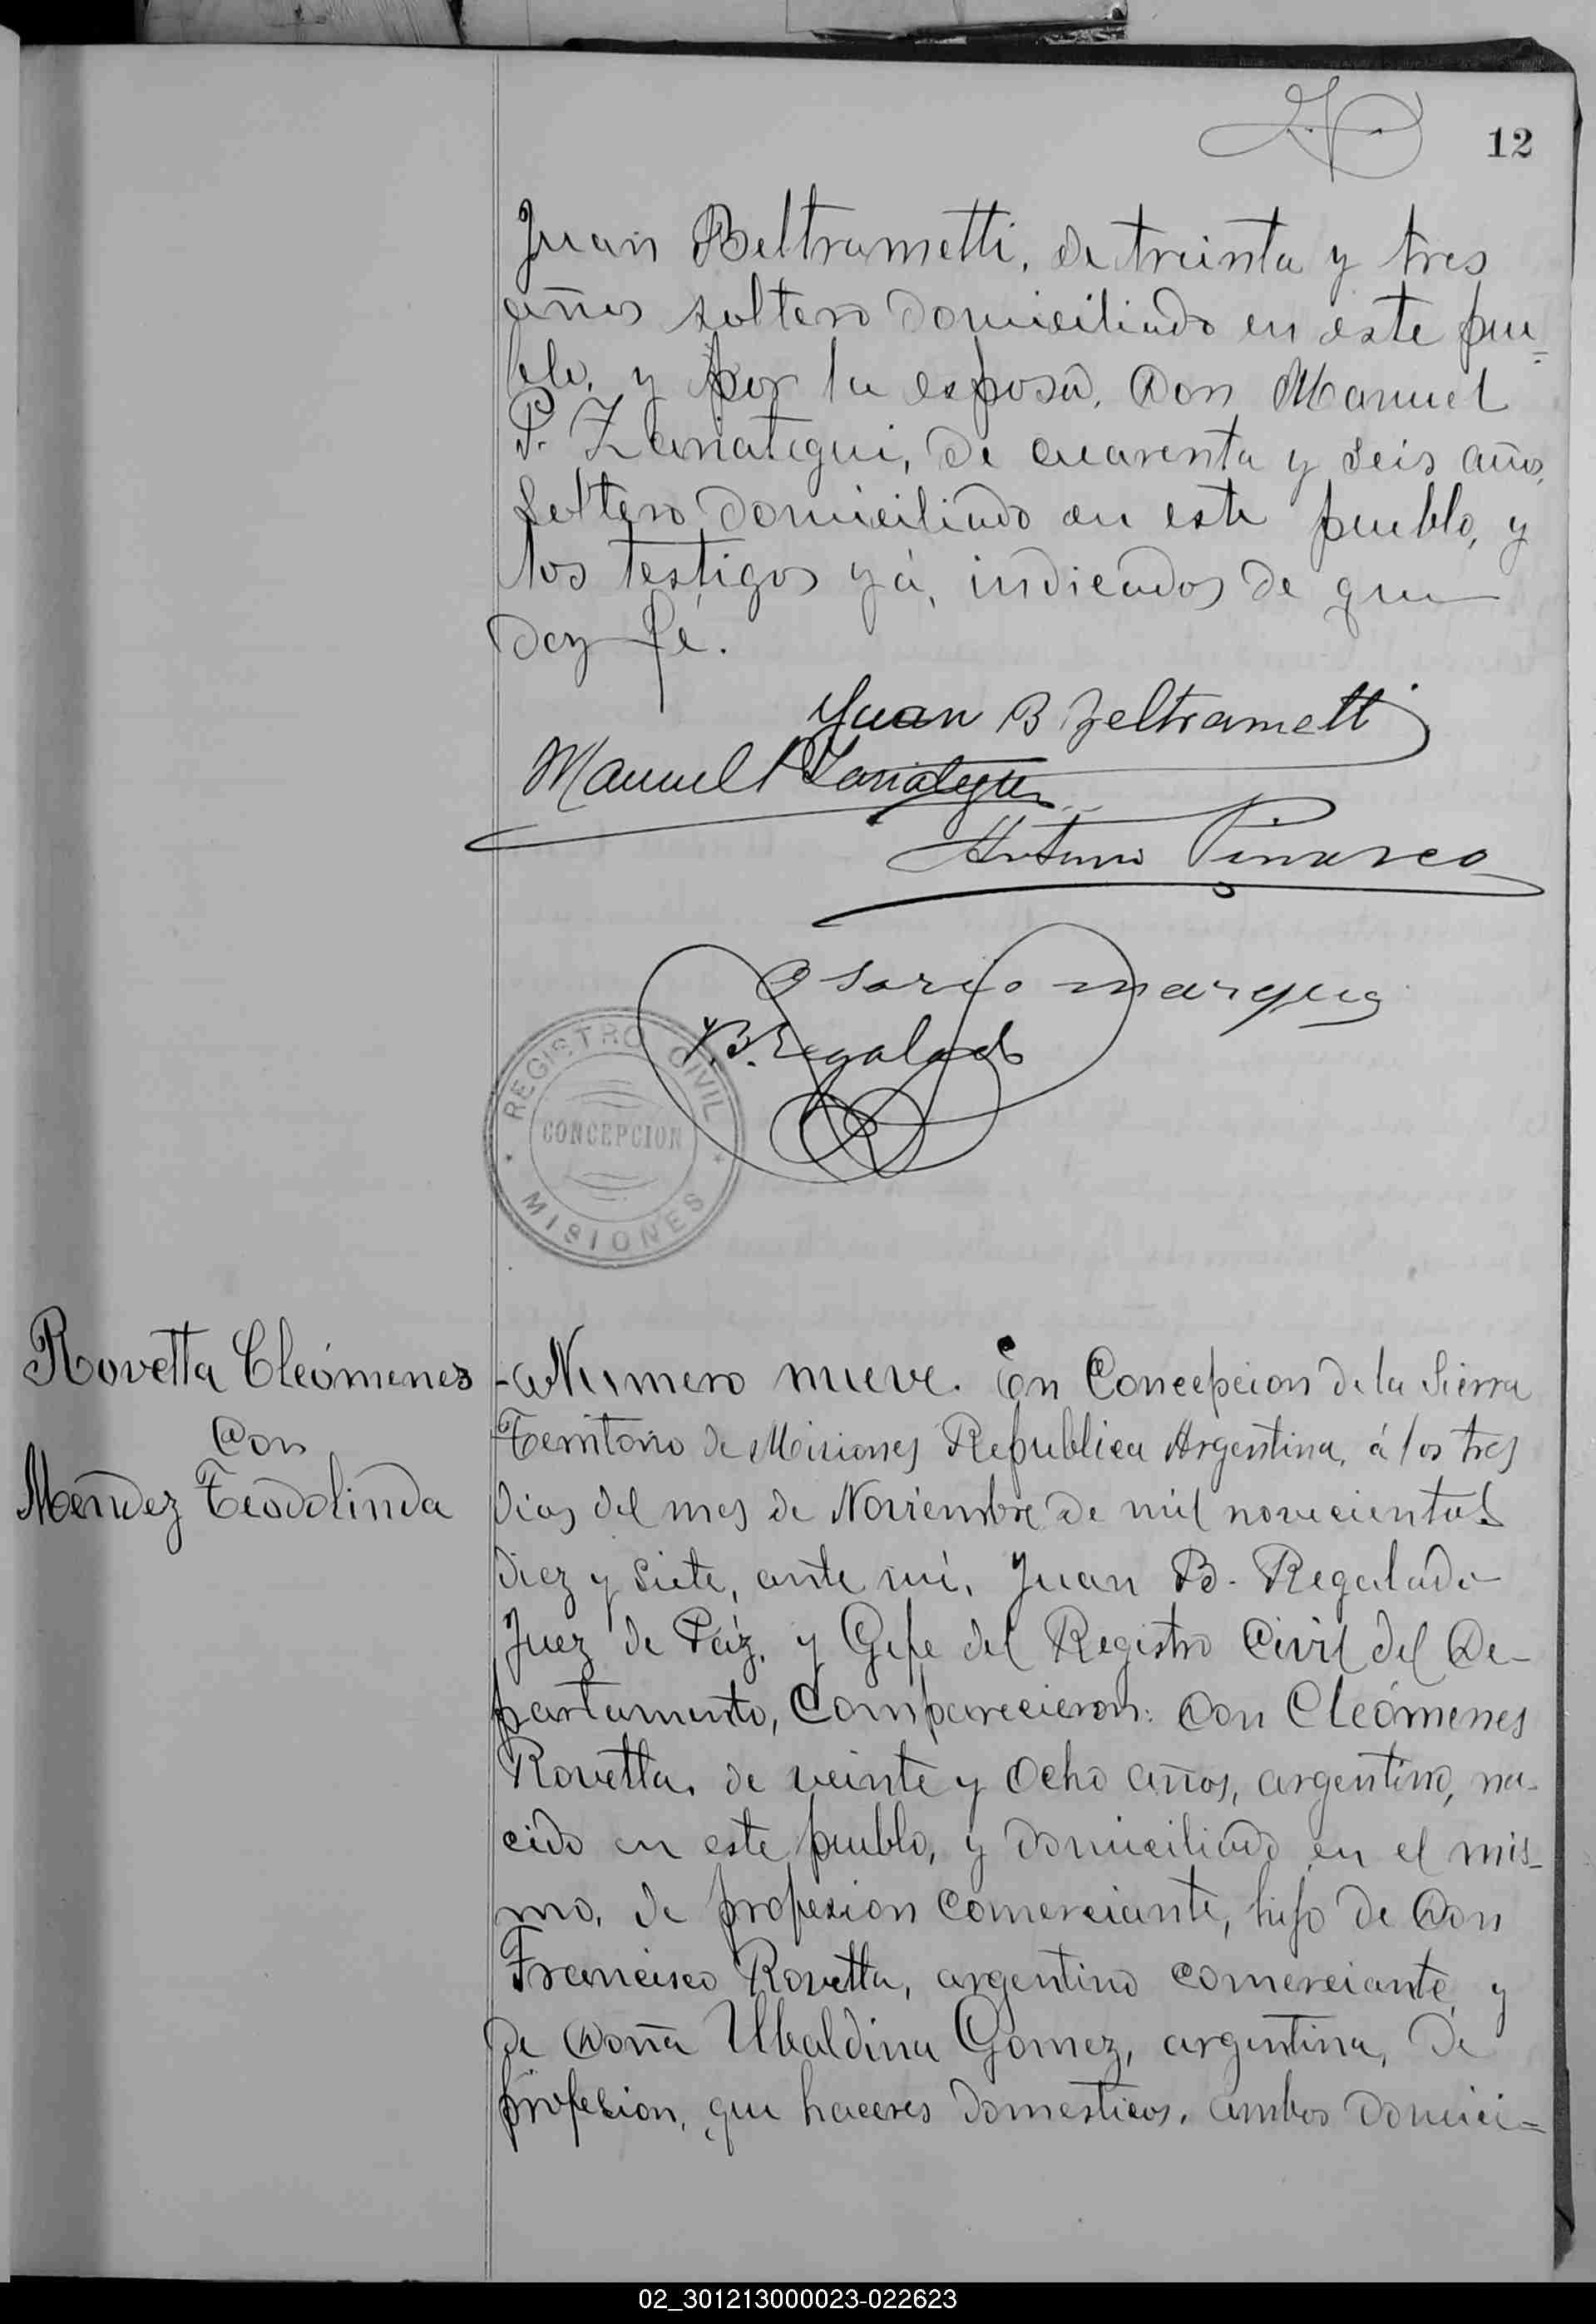 12
Juan Beltrametti, de treinta y tres
años soltero domiciliado en este pue=
blo, y por la esposa, Don Manuel
P. Zariategui, de cuarenta y seis años,
Soltero domiciliado en este pueblo, y
los testigos yá, indicados de que
doy fé.
Juan B Beltrametti
Manuel P Zariategui
Arturo
Osorio marques
J.B. Regalado
REGISTRO CIVIL
CONCEPCION
MISIONES
Rovetta Cleómenes
Con
Mendez Teodolinda
Numero nueve. En Concepcion de la Sierra
Territorio de Misiones Republica Argentina, á los tres
dias del mes de Noviembre de mil novecientos
diez y siete, ante mí, Juan B. Regalado
Juez de Páz, y Gefe del Registro Civil del De-
partamento, Comparecieron: Don Cleómenes
Rovetta, de veinte y ocho años, argentino, na-
cido en este pueblo, y domiciliado en el mis-
mo, de profesion Comerciante, hijo de Don
Francisco Rovetta, argentino comerciante, y
de Doña Ubaldina Gomez, argentina, de
profesion, que haceres domesticos, ambos domici=
02_301213000023-022623